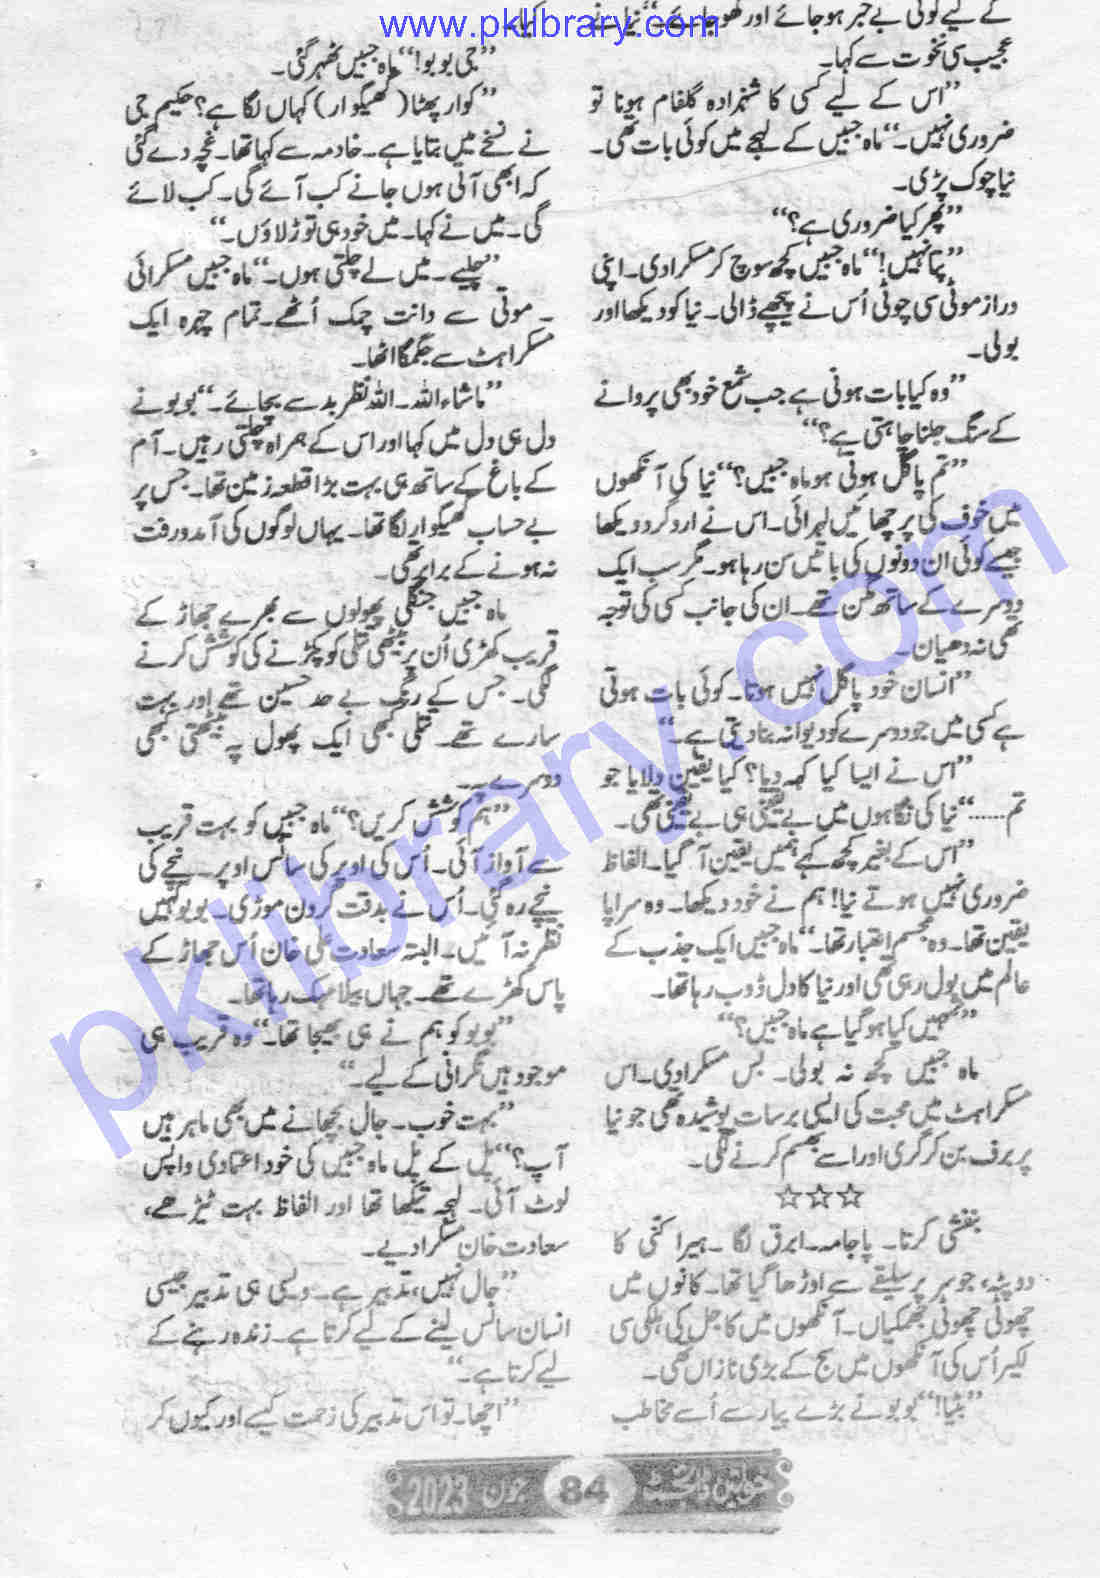 www.pklibrary.com
کے لیے کوئی بے خبر ہو جائے اور کھو جائے۔“ نیا نے
عجیب سی نخوت سے کہا۔
”اس کے لیے کسی کا شہزادہ گلفام ہونا تو
ضروری نہیں۔“ ماہ جبیں کے لہجے میں کوئی بات تھی۔
نیا چونک پڑی۔
”پھر کیا ضروری ہے؟“
”پتا نہیں!“ ماہ جبیں کچھ سوچ کر مسکرا دی۔ اپنی
دراز موٹی سی چوٹی اُس نے پیچھے ڈالی۔ نیا کو دیکھا اور
بولی۔
”وہ کیا بات ہوتی ہے جب شمع خود بھی پروانے
کے سنگ جلنا چاہتی ہے؟“
”تم پاگل ہوئی ہو ماہ جبیں؟“ نیا کی آنکھوں
میں خوف کی پرچھائیں لہرائی۔ اس نے اردگرد دیکھا
جیسے کوئی ان دونوں کی باتیں سن رہا ہو۔ مگر سب ایک
دوسرے کے ساتھ مگن تھے۔ ان کی جانب کسی کی توجہ
تھی نہ دھیان۔
”انسان خود پاگل نہیں ہوتا۔ کوئی بات ہوتی
ہے کسی میں جو دوسرے کو دیوانہ بنا دیتی ہے۔“
”اس نے ایسا کیا کہہ دیا؟ کیا یقین دلایا جو
تم......“ نیا کی نگاہوں میں بے یقینی ہی بے یقینی تھی۔
”اس کے بغیر کچھ کہے ہمیں یقین آ گیا۔ الفاظ
ضروری نہیں ہوتے نیا! ہم نے خود دیکھا۔ وہ سراپا
یقین تھا۔ وہ مجسم اعتبار تھا۔“ ماہ جبیں ایک جذب کے
عالم میں بول رہی تھی اور نیا کا دل ڈوب رہا تھا۔
”تمہیں کیا ہو گیا ہے ماہ جبیں؟“
ماہ جبیں کچھ نہ بولی۔ بس مسکرا دی۔ اس
مسکراہٹ میں محبت کی ایسی برسات پوشیدہ تھی جو نیا
پر برف بن کر گری اور اسے بھسم کرنے لگی۔
☆☆☆
بنفشی کرتا۔ پاجامہ۔ ابرق لگا۔ ہیرا کنی کا
دوپٹہ، جو سر پر سلیقے سے اوڑھا گیا تھا۔ کانوں میں
چھوٹی چھوٹی جھمکیاں۔ آنکھوں میں کاجل کی ہلکی سی
لکیر اُس کی آنکھوں میں سج کے بڑی نازاں تھی۔
”بٹیا!“ بوبو نے بڑے پیار سے اُسے مخاطب
کیا۔
”جی بوبو!“ ماہ جبیں ٹھہر گئی۔
”کوار پھٹا (گھیگوار) کہاں لگا ہے؟ حکیم جی
نے نسخے میں بتایا ہے۔ خادمہ سے کہا تھا۔ غچہ دے گئی
کہ ابھی آتی ہوں جانے کب آئے گی۔ کب لائے
گی۔ میں نے کہا۔ میں خود ہی توڑ لاؤں۔“
”چلیے۔ میں لے چلتی ہوں۔“ ماہ جبیں مسکرائی
۔ موتی سے دانت چمک اُٹھے۔ تمام چہرہ ایک
مسکراہٹ سے جگمگا اٹھا۔
”ماشاء اللہ۔ اللہ نظر بد سے بچائے۔“ بوبو نے
دل ہی دل میں کہا اور اس کے ہمراہ چلتی رہیں۔ آم
کے باغ کے ساتھ ہی بہت بڑا قطعہ زمین تھا۔ جس پر
بے حساب گھیگوار لگا تھا۔ یہاں لوگوں کی آمدورفت
نہ ہونے کے برابر تھی۔
ماہ جبیں جنگلی پھولوں سے بھرے جھاڑ کے
قریب کھڑی اُن پر بیٹھی تتلی کو پکڑنے کی کوشش کرنے
لگی۔ جس کے رنگ بے حد حسین تھے اور بہت
سارے تھے۔ تتلی کبھی ایک پھول پہ بیٹھتی کبھی
دوسرے پہ۔
”ہم کوشش کریں؟“ ماہ جبیں کو بہت قریب
سے آواز آئی۔ اُس کی اوپر کی سانس اوپر۔ نیچے کی
نیچے رہ گئی۔ اُس نے بدقت گردن موڑی۔ بوبو کہیں
نظر نہ آئیں۔ البتہ سعادت علی خان اُس جھاڑ کے
پاس کھڑے تھے۔ جہاں بیلا مہک رہا تھا۔
”بوبو کو ہم نے ہی بھیجا تھا۔“ وہ قریب ہی
موجود ہیں نگرانی کے لیے۔“
”بہت خوب۔ جال بچھانے میں بھی ماہر ہیں
آپ؟“ پل کے پل ماہ جبیں کی خود اعتمادی واپس
لوٹ آئی۔ لہجہ تیکھا تھا اور الفاظ بہت ٹیڑھے،
سعادت خان مسکرا دیے۔
”جال نہیں، تدبیر ہے۔ ویسی ہی تدبیر جیسی
انسان سانس لینے کے لیے کرتا ہے۔ زندہ رہنے کے
لیے کرتا ہے۔“
”اچھا۔ تو اس تدبیر کی زحمت کیسے اور کیوں کر
خواتین ڈائجسٹ 84 جون 2023
pklibrary.com